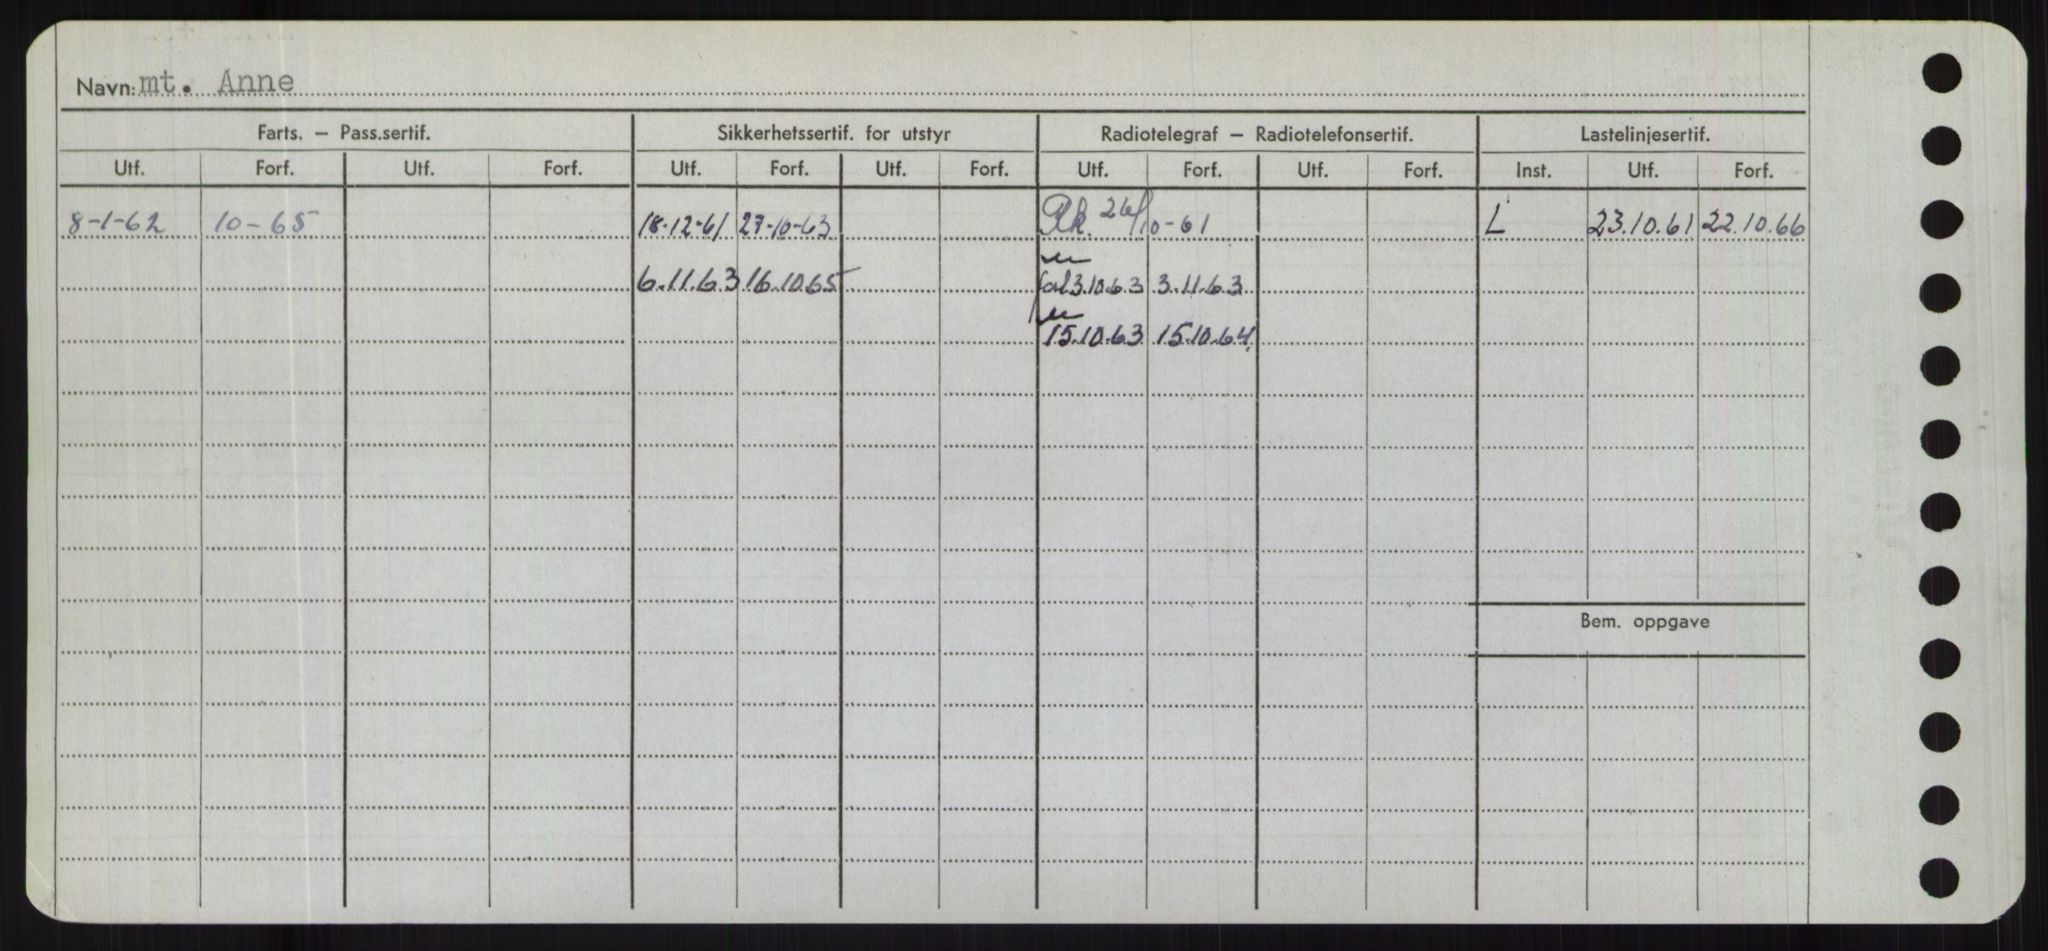 Navn: mt. Anne
Farts. – Pass.sertif. Sikkerhetssertif. for utstyr Radiotelegraf – Radiotelefonsertif. Lastelinjesertif.
Utf. Forf. Utf. Forf. Utf. Forf. Utf. Forf. Utf. Forf. Utf. Forf. Inst. Utf. Forf.
8-1-62 10-65 18-12-61 27-10-63 Rk. 26/10-61 L 23.10.61 22.10.66
6.11.63 16.10.65 3.10.63 3.11.63
15.10.63 15.10.64
Bem. oppgave